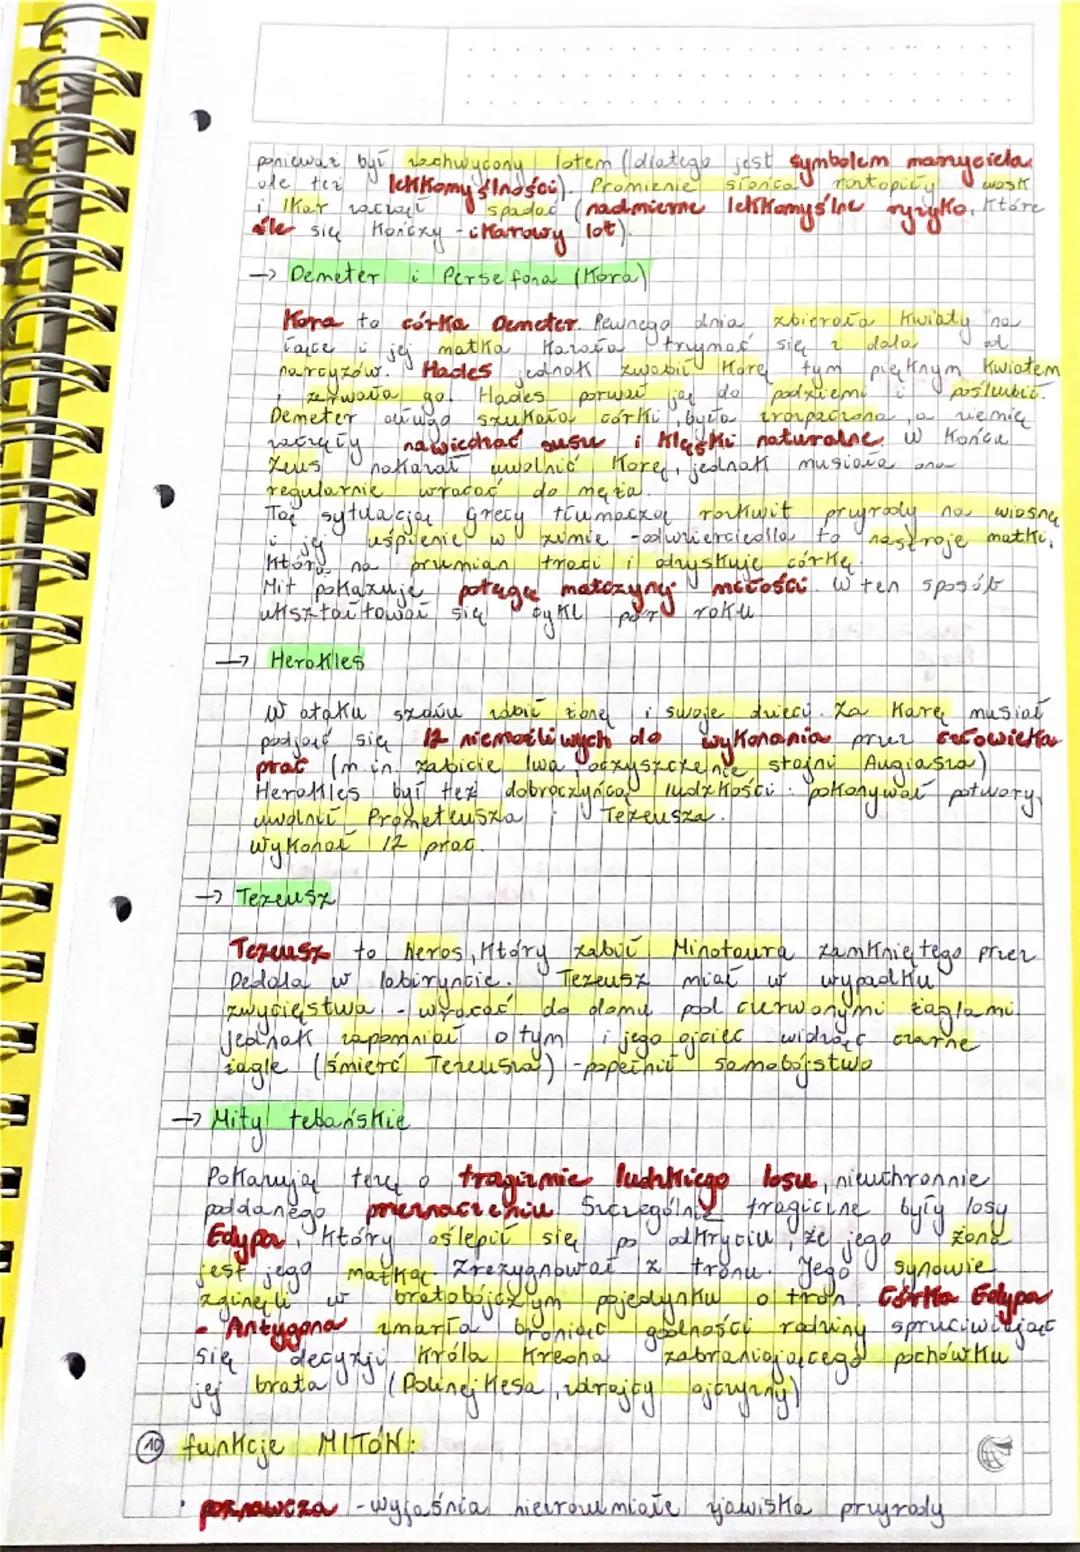 ponieważ był zachwycony lotem (dlatego jest symbolem marzyciela
ale też lekkomyślności). Promienie słońca roztopiły wosk
i Ikar zaczął spadać (nadmierne lekkomyślne ryzyko, które
źle się kończy - ikarowy lot).
→ Demeter i Persefona (Kora)
Kora to córka Demeter. Pewnego dnia zbierała kwiaty na
łące i jej matka kazała trzymać się z dala od
narcyzów. Hades jednak zwabił Korę tym pięknym kwiatem
i zerwała go. Hades porwał ją do podziemi i poślubił.
Demeter długo szukała córki, była zrozpaczona, a ziemię
zaczęły nawiedzać susze i klęski naturalne. W końcu
Zeus nakazał uwolnić Korę, jednak musiała ona
regularnie wracać do męża.
Tą sytuacją Grecy tłumaczą rozkwit przyrody na wiosnę
i jej uśpienie w zimie - odwzierciedla to nastroje matki,
która na przemian traci i odzyskuje córkę.
Mit pokazuje potęgę matczynej miłości. W ten sposób
ukształtował się cykl pór roku
→ Herakles
W ataku szału zabił żonę i swoje dzieci. Za karę musiał
podjąć się 12 niemożliwych do wykonania przez człowieka
prac (m.in. zabicie lwa, oczyszczenie stajni Augiasza)
Herakles był też dobroczyńcą ludzkości: pokonywał potwory,
uwolnił Prometeusza i Tezeusza.
Wykonał 12 prac.
→ Tezeusz
Tezeusz to heros, który zabił Minotaura zamkniętego przez
Dedala w labiryncie. Tezeusz miał w wypadku
zwycięstwa - wracać do domu pod czerwonymi żaglami.
Jednak zapomniał o tym i jego ojciec widząc czarne
żagle (śmierć Tezeusza) - popełnił samobójstwo
→ Mity tebańskie
Pokazują tezę o tragizmie ludzkiego losu, nieuchronnie
poddanego przeznaczeniu. Szczególnie tragiczne były losy
Edypa, który oślepił się po odkryciu, że jego żona
jest jego matką. Zrezygnował z tronu. Jego synowie
zginęli w bratobójczym pojedynku o tron. Córka Edypa
- Antygona zmarła broniąc godności rodziny sprzeciwiając
się decyzji króla Kreona zabraniającego pochówku
jej brata (Polinejkesa, zdrajcy ojczyzny)
10 funkcje MITÓW:
· poznawcza - wyjaśnia niezrozumiałe zjawiska przyrody